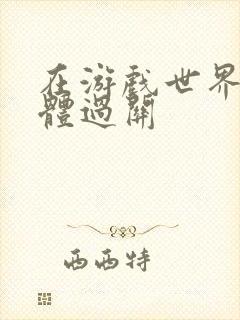 在游戏世界
體過關
西西特